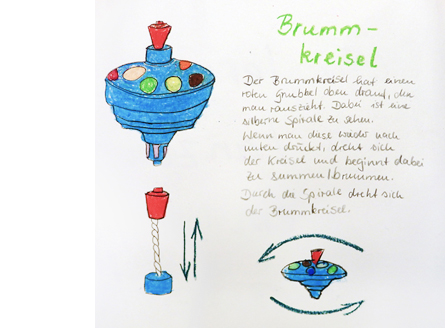 Brumm-
kreisel
Der Brummkreisel hat einen
roten Gnubbel oben drauf, den
man rauszieht. Dabei ist eine
silberne Spirale zu sehen.
Wenn man diese wieder nach
unten drückt, dreht sich
der Kreisel und beginnt dabei
zu summen/brummen.
Durch die Spirale dreht sich
der Brummkreisel.